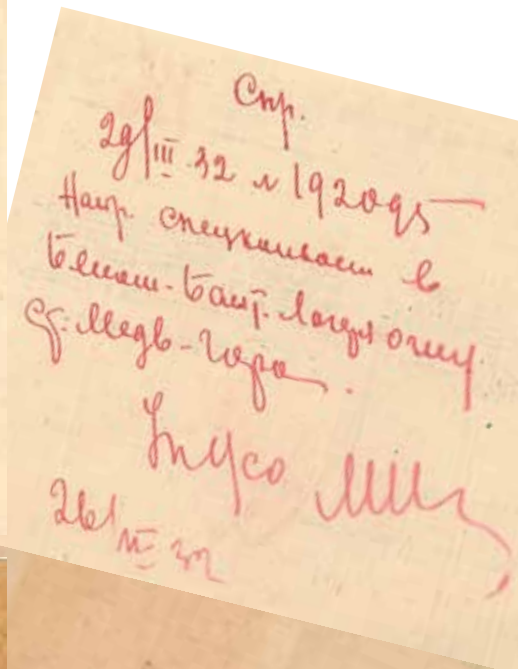 Спр.
29/III 32 N 192095
Напр. спецконвоем в
Беломор-Балт. лагеря ОГПУ
ст. Медв-Гора.
26/III 32